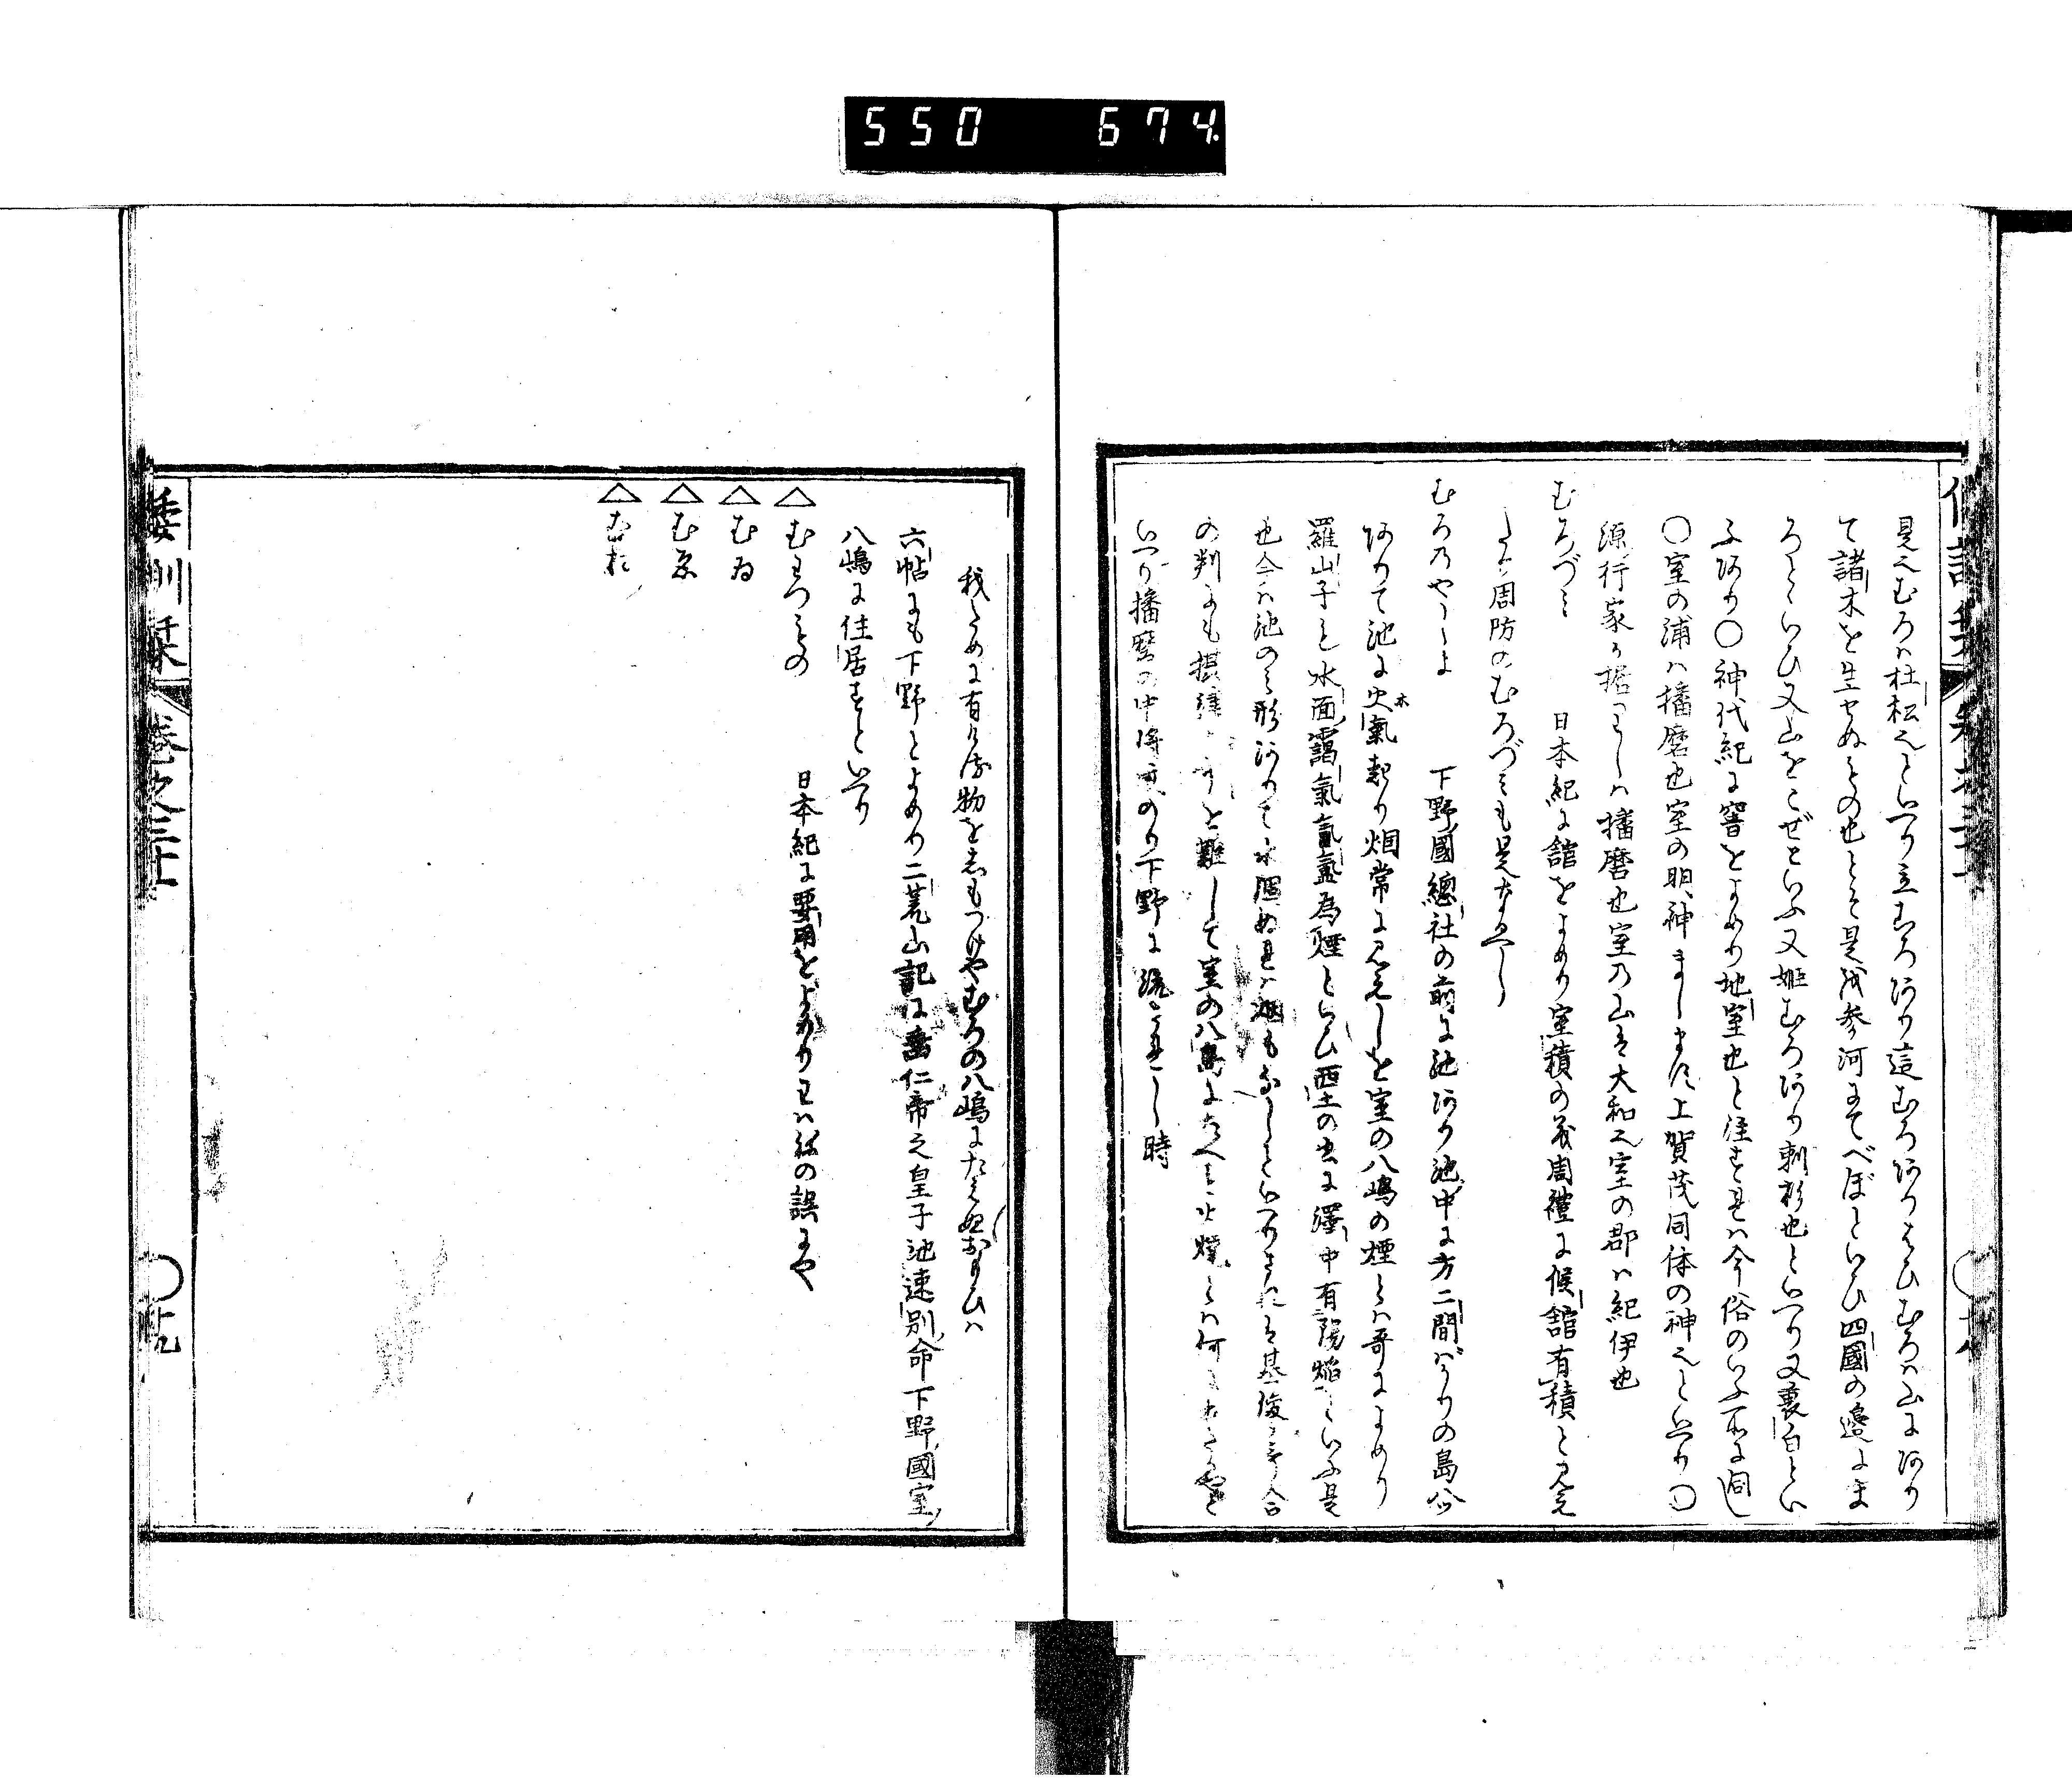 550 674
見えむろハ杜松也といへり立むろあり這むろありはひむろハ山にあり
て諸木を生せぬもの也とそ是を参河にてべぼといひ四國の邉にま
ろといひ又山をこぜといふ又姫むろあり刺杉也といへり又裏白とい
ふあり〇神代紀に窨をよめり地室也と注すされハ今俗のいふ所に同し
〇室の浦ハ播磨也室の明神まします上賀茂同体の神也といへり〇
源行家か据りしハ播磨也室の山は大和也室の郡ハ紀伊也
むろづミ 日本紀に舘をよめり室積の義周禮に候舘有積と見え
たり周防のむろづミも是なるへし
むろのやしま 下野國總社の前に池あり池中に方二間ばかりの島八ツ
ありて池に火氣起り烟常に見えしを室の八嶋の煙とハ哥によめり
羅山子も水面靄氣氤氳為煙といひ西土の書に澤中有陽焔といふ是
也今ハ池のミ形ありて水涸ぬれハ烟もなしといへりされは基俊か哥合
の判にも摂津かうたを難して室の八島にたへミ火燒とハ何にわきさるやと
いへり播磨の中将惟のり下野に流されし時
我ために有ける物をしもつけやむろの八嶋にたえぬおもひハ
六帖にも下野とよめり二荒山記に垂仁帝之皇子池速別命下野國室
八嶋に住居すといへり
△むわつもの 日本紀に要用をよめりわハねの誤にや
△むゐ
△むゑ
△むお
倭訓栞 巻之三十一 〇 廿九